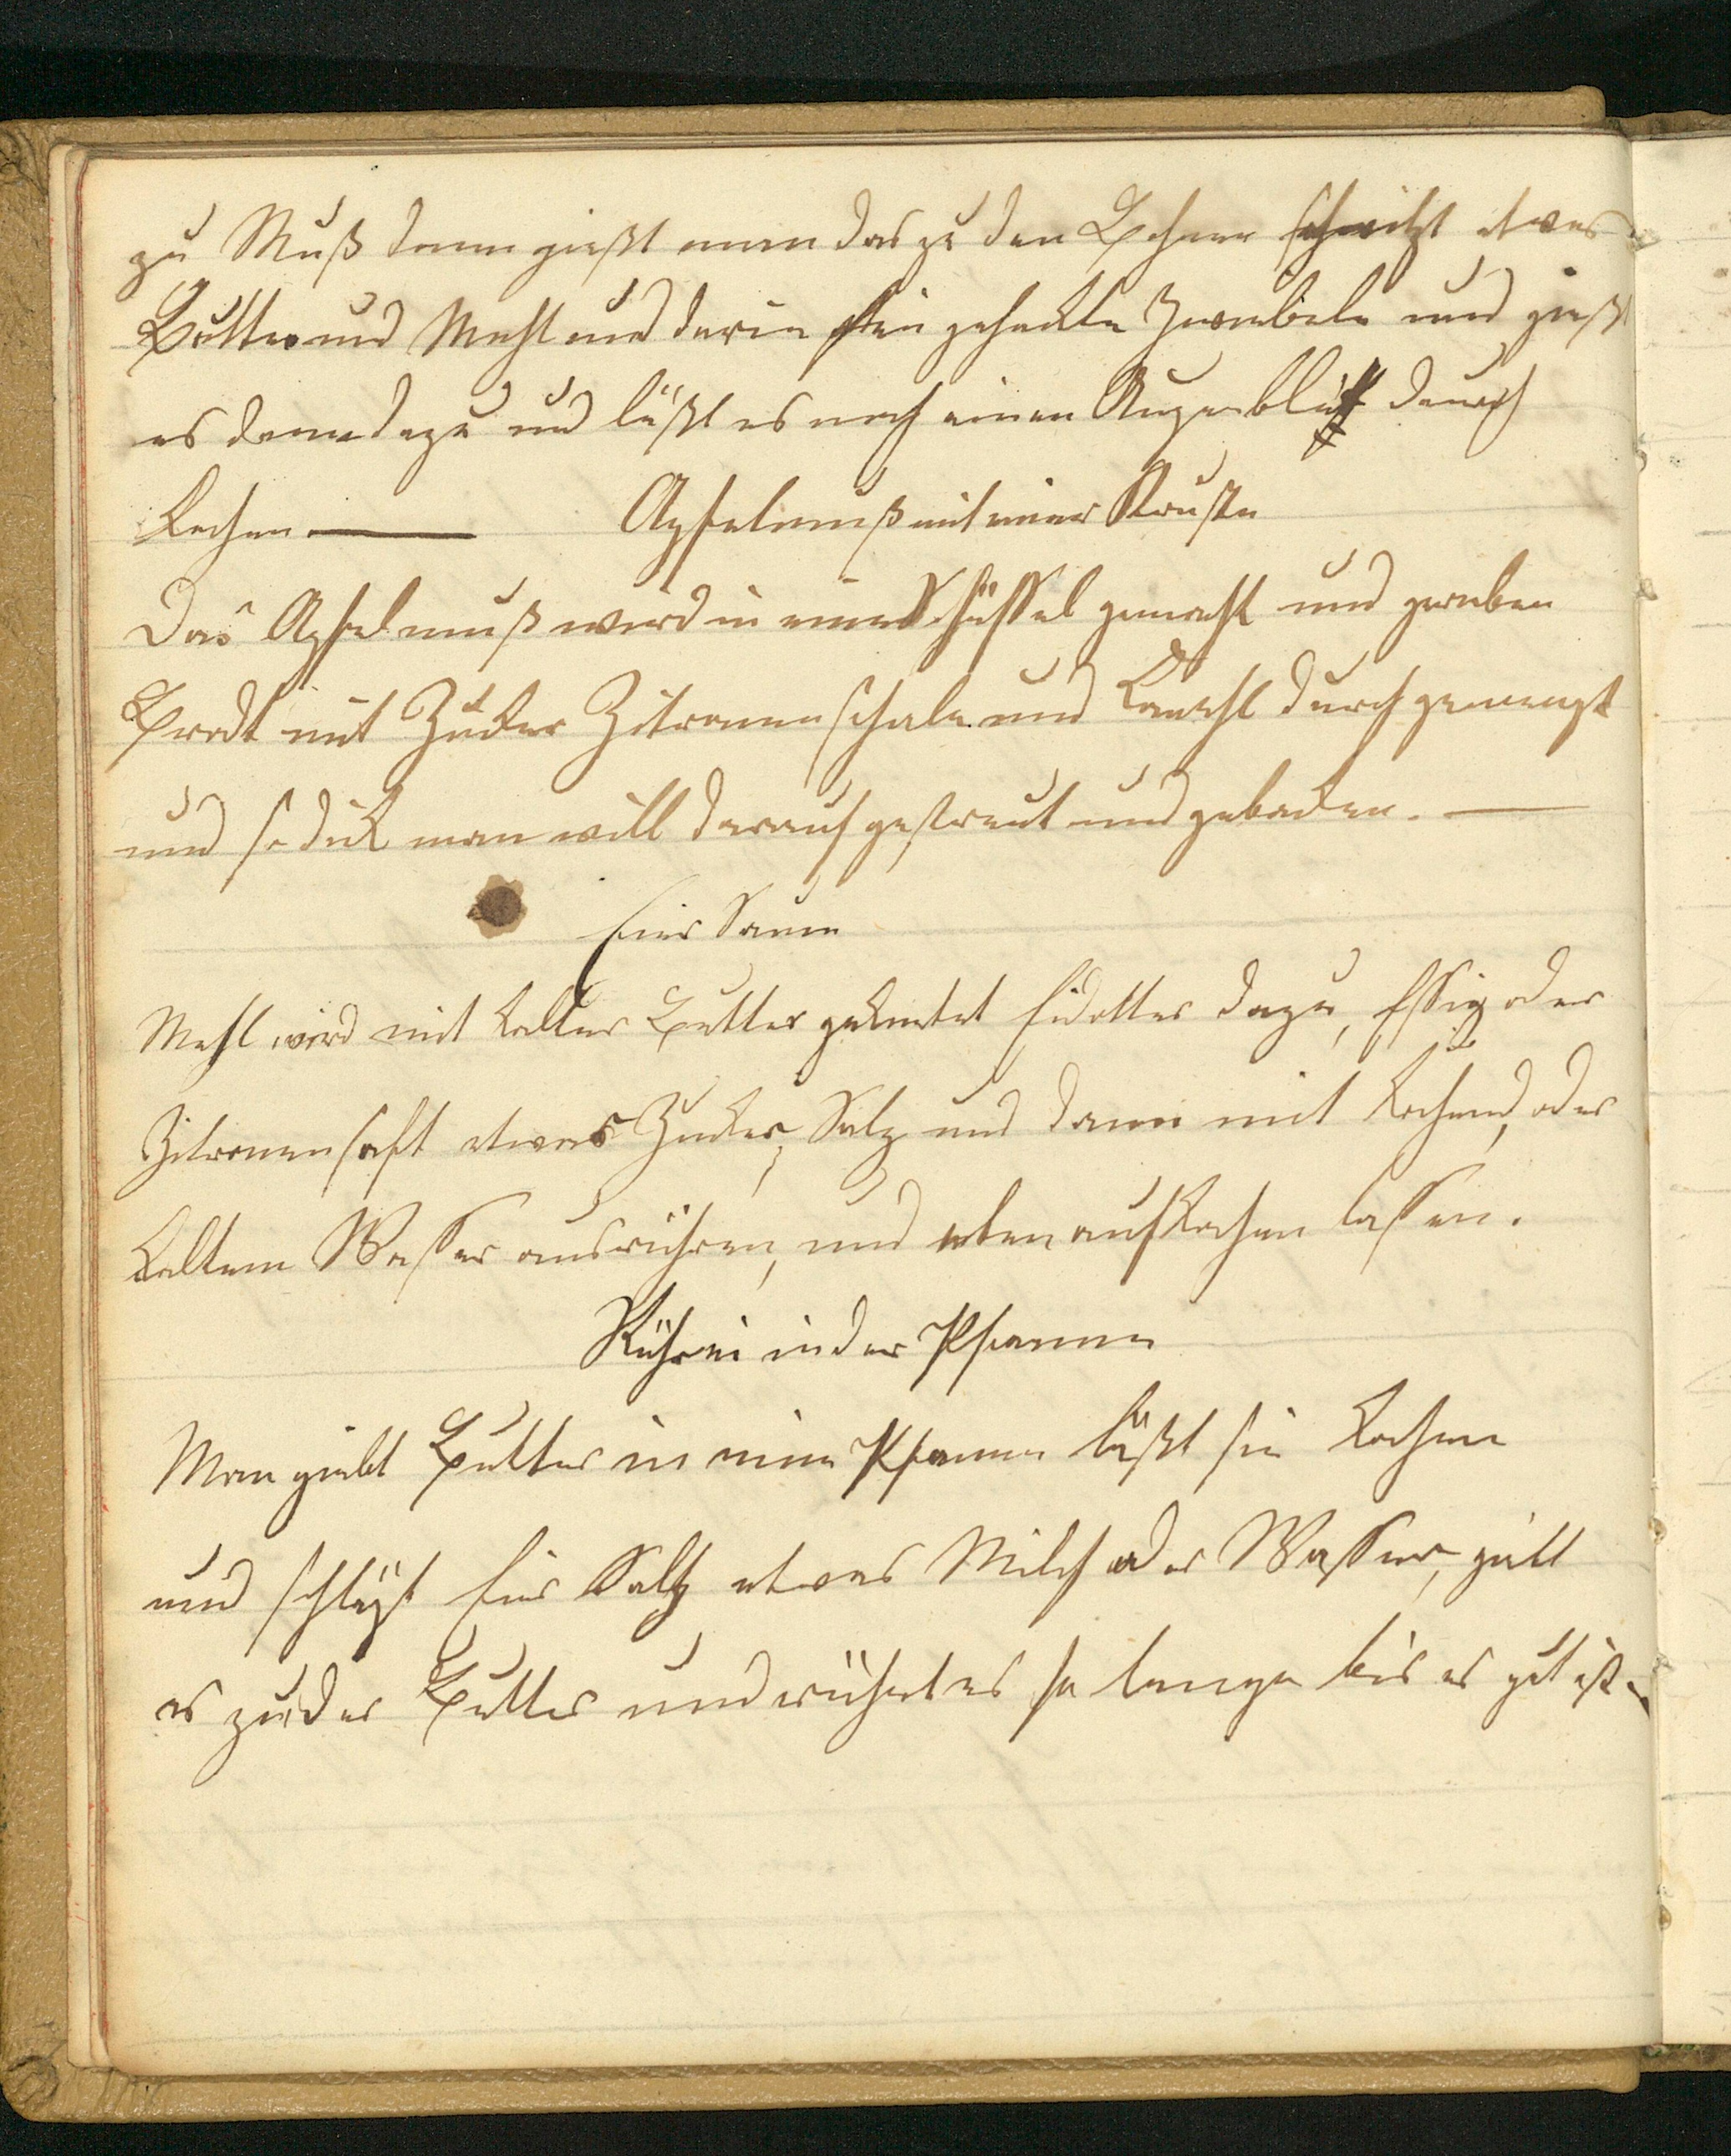 zu Muß dann gießt man das zu den Bohnen schwitzt etwas
Butter und Mehl und darin fein gehackte Zwiebeln und gießt
es dann dazu und läßt es noch einen Augenblick durch
kochen — Apfelmuß mit einer Kruste
Das Apfelmuß wird in eine Schüssel gemacht und gerieben
Brodt mit Zucker Zitronenschale und Kaneehl durchgemengt
und so dick man will darauf gestreut und gebacken. —
Eier
Mehl wird mit kalter Butter geknetet Eidotter dazu, Essig oder
Zitronensaft etwas Zucker, Salz und dann mit kochend, oder
kaltem Wasser ausrühren, und eben aufkochen lassen.
Rührei in der Pfanne
Man giebt Butter in eine Pfanne läßt sie kochen
und schlägt Eier Salz etwas Milch oder Wasser, giebt
es zu der Butter und rührt es so lange bis es gut ist.